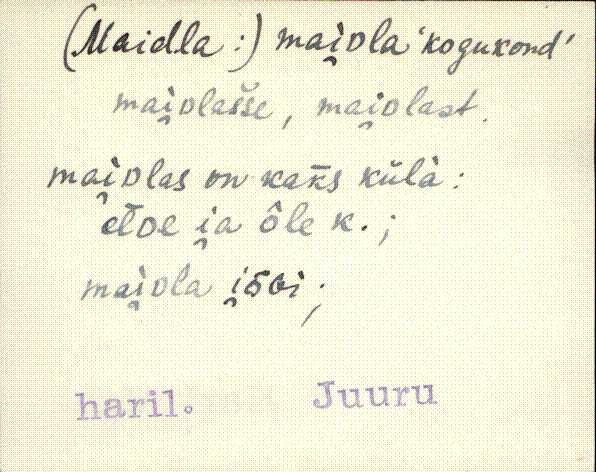 (Maidla :) mai̯ᴅla 'kogukond'
mai̯ᴅlašše, mai̯ᴅlast.
mai̯ᴅlas on kak̄s külà :
eᴅe i̯a ôle k. ;
mai̯ᴅla i̯õɢi ;
haril. Juuru